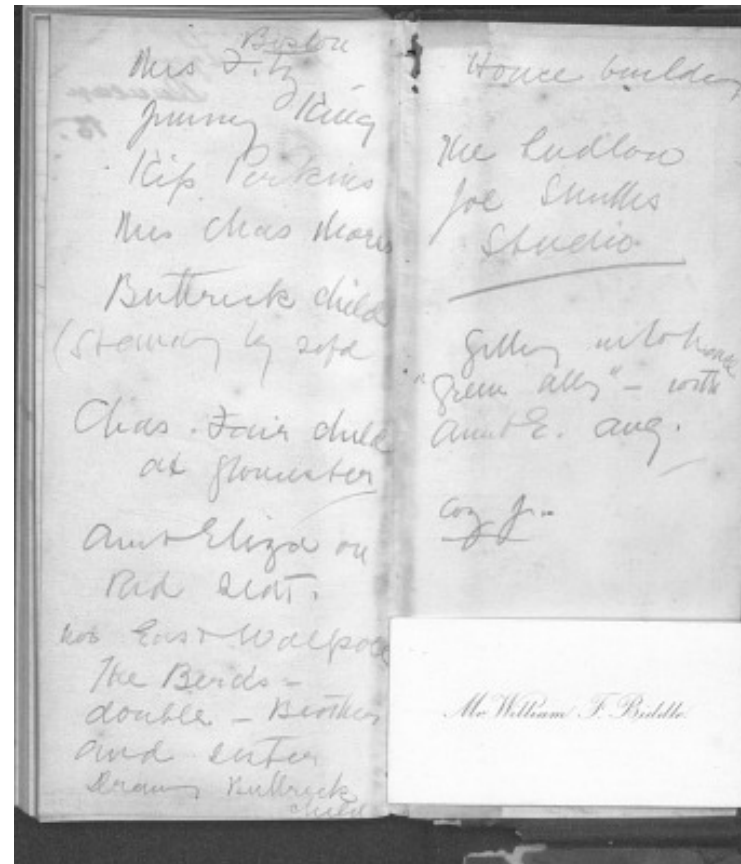 Boston
Mrs Fitz
Jimmy King
Kip Perkins
Mrs Chas
Buttrick child
(Standing by sofa
Chas. Fairchild
at Gloucester
Aunt Eliza on
Red seat.
Nov East Walpole
The Birds -
double - Brother
and sister
Drawg Buttrick
child
House building
The Ludlow
Joe Smiths
Studio
Getting into house
"green alley" - with
Aunt E. Aug.
Coz Jr.
Mr William F. Biddle.